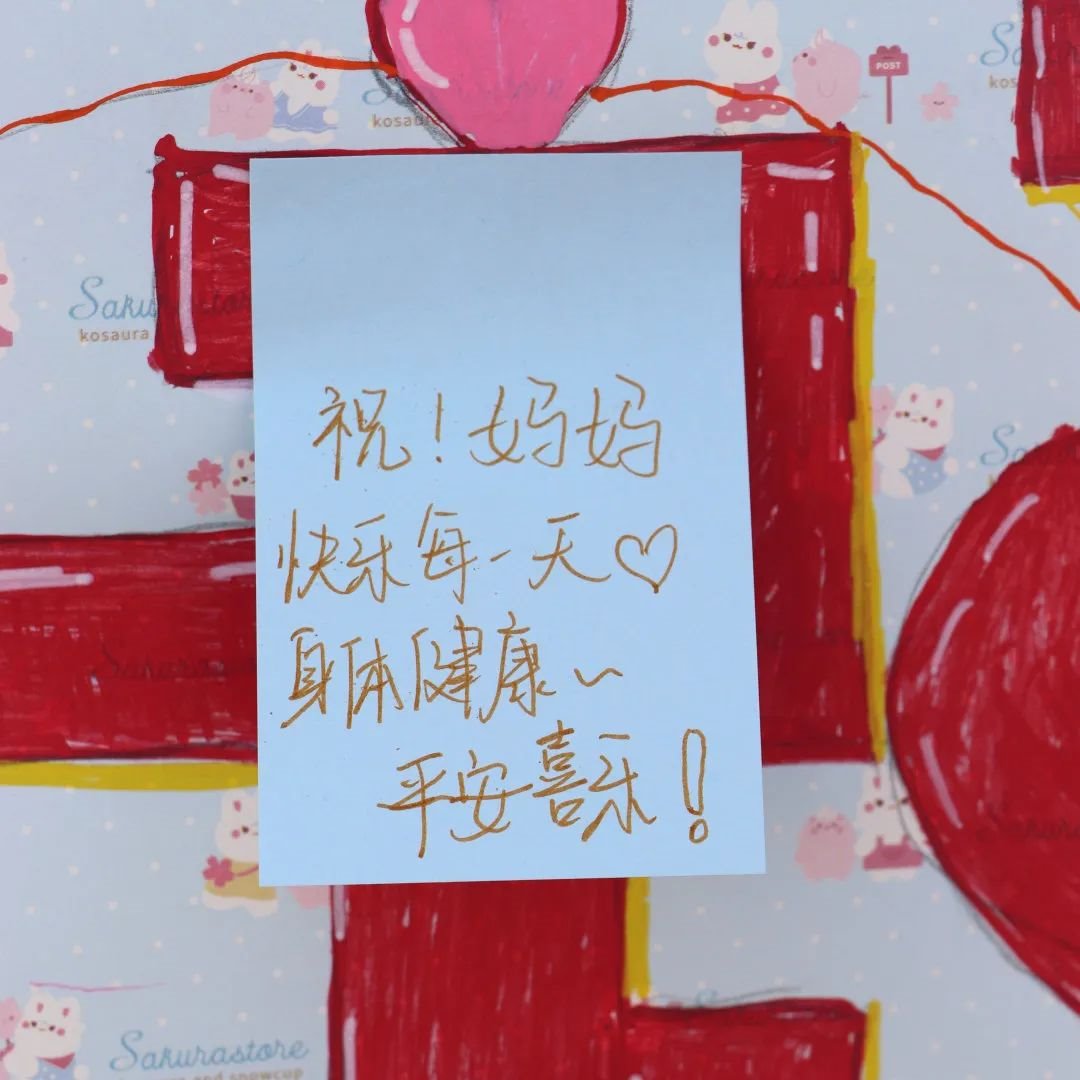 Sakurastore
kosaura
POST
祝！妈妈
快乐每一天♡
身体健康~
平安喜乐！
Sakurastore
and snowcup